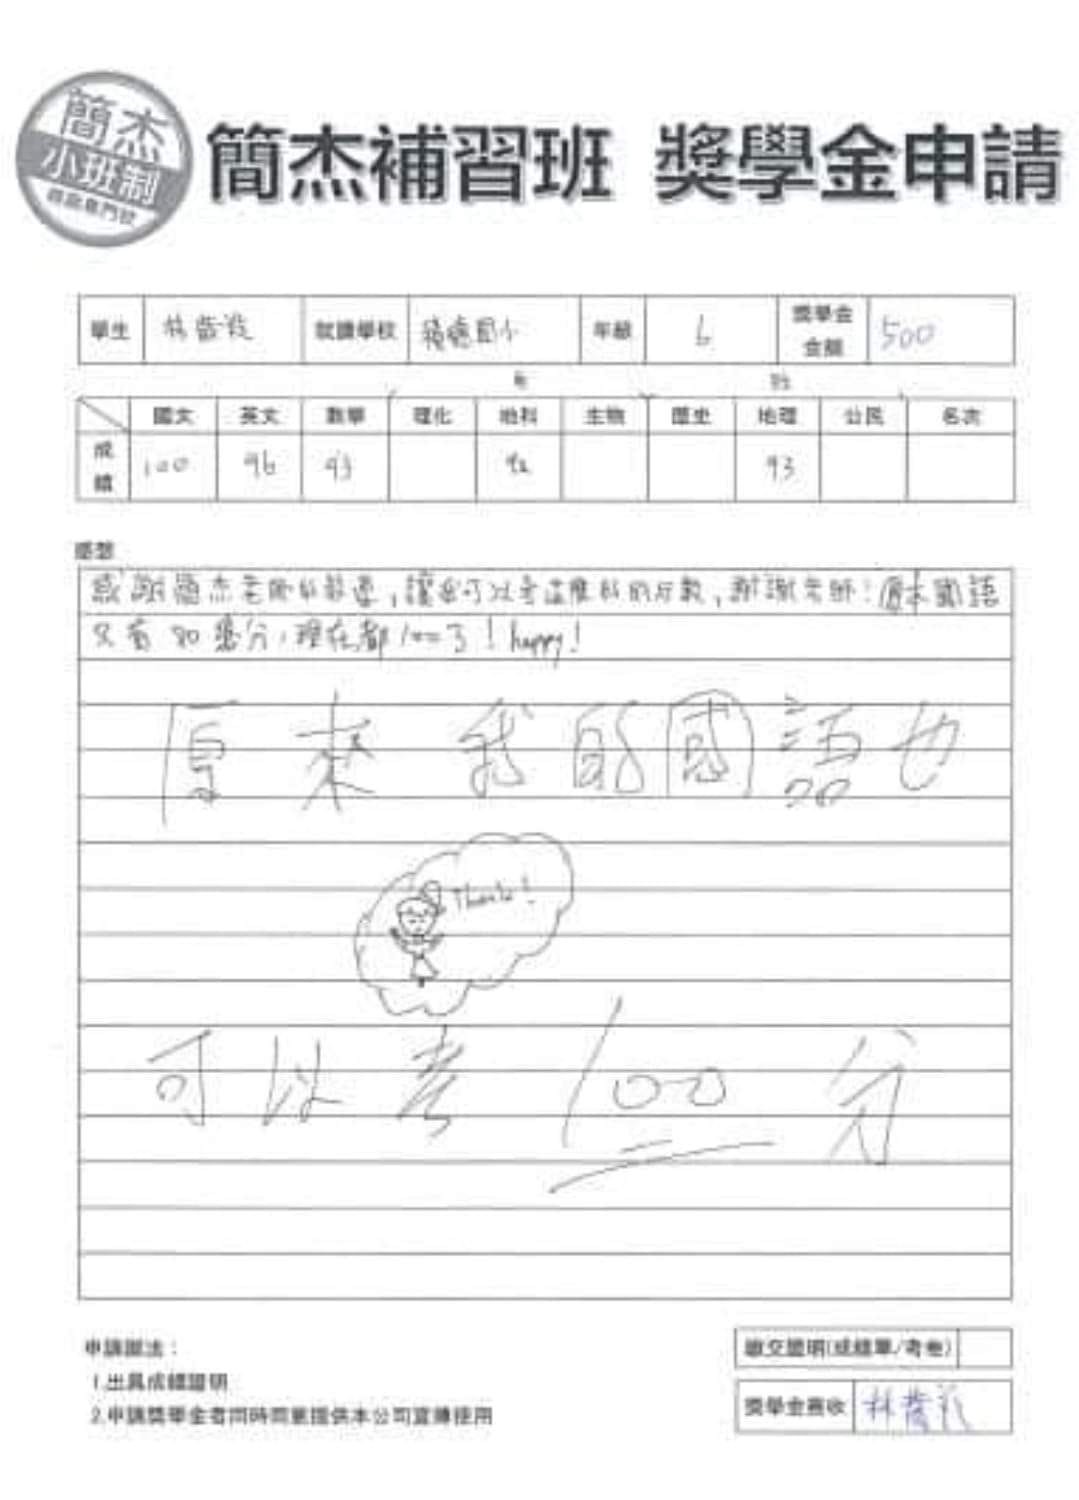 簡杰
小班制
簡杰補習班 獎學金申請
學生 林 就讀學校 積穗國小 年級 6 獎學金金額 500
自 社
國文 英文 數學 理化 地科 生物 歷史 地理 公民 名次
成績 100 96 93 92 93
感想
感謝簡杰老師的教導,讓我可以考這麼好的分數,謝謝老師!原本國語
只有 80 幾分,現在都100了!happy!
原來我的國語也
Thanks!
可以考100分
申請辦法:
繳交證明(成績單/考卷)
1.出具成績證明
2.申請獎學金者同時同意提供本公司宣傳使用
獎學金簽收 林